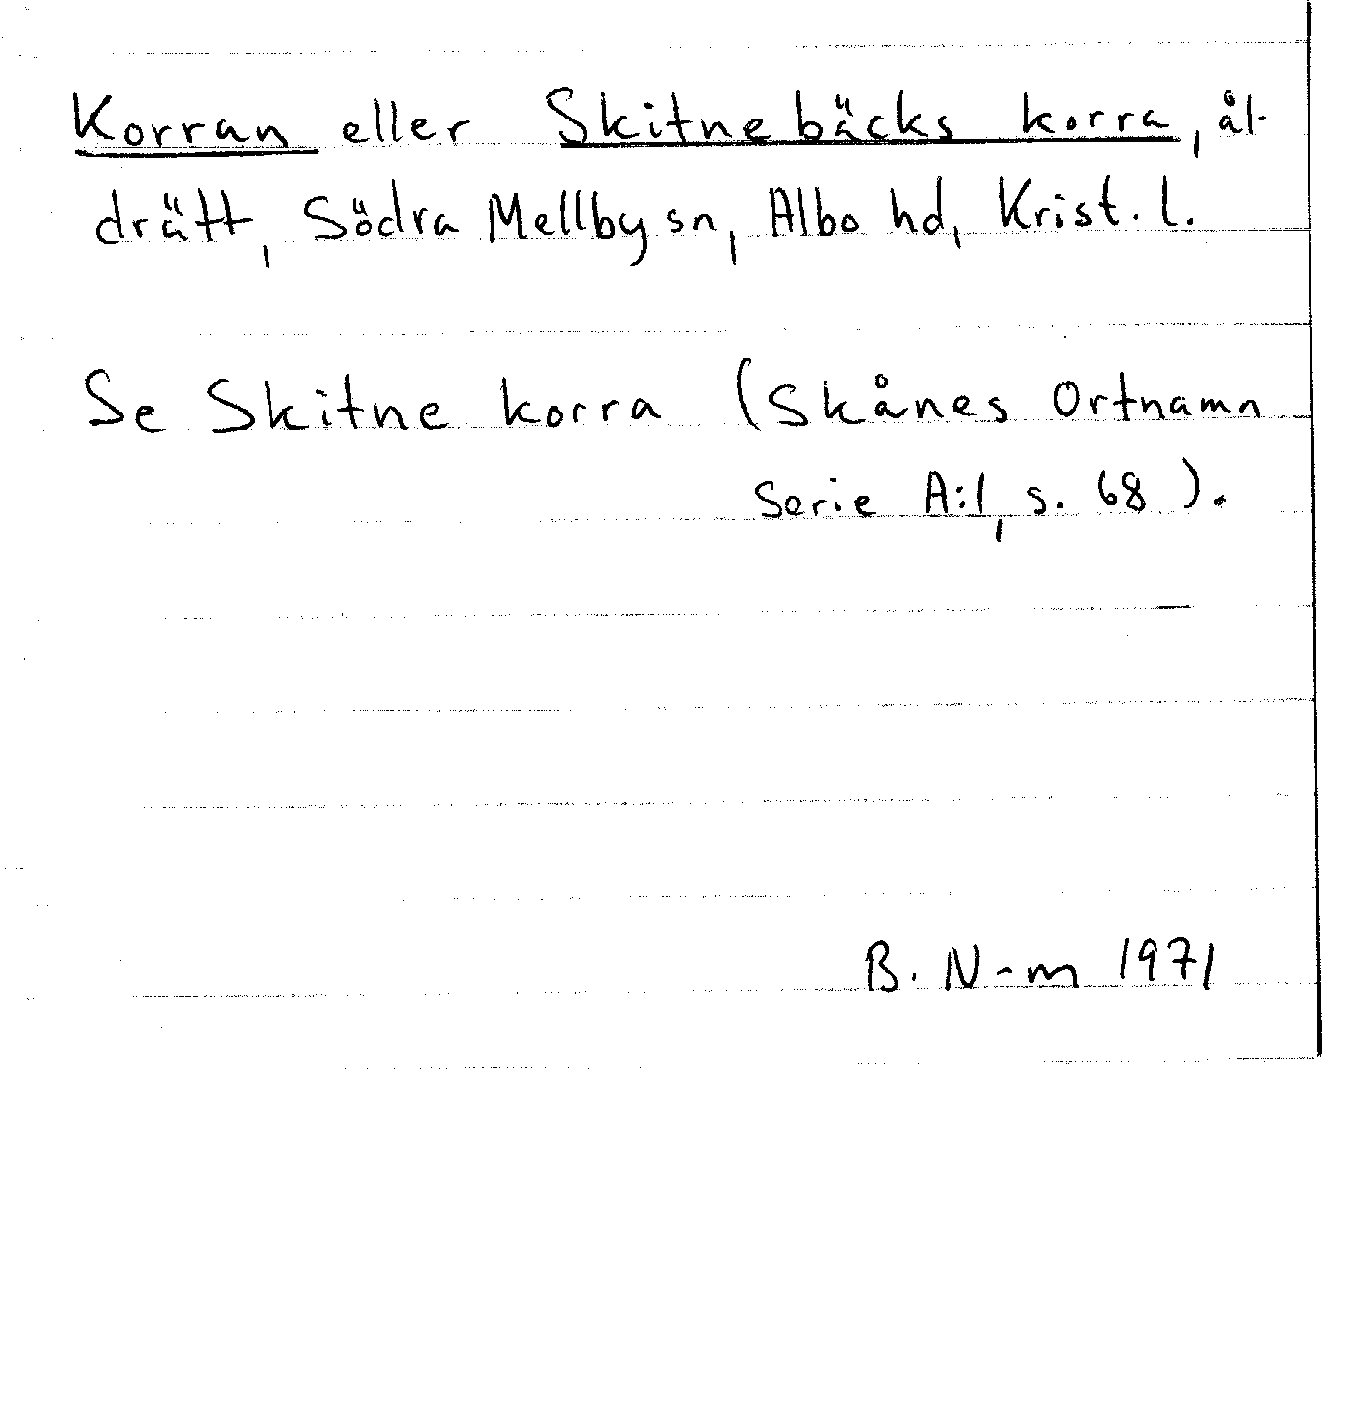 Korran eller Skitnebäcks korra, ål-
drätt, Södra Mellby sn, Albo hd, Krist. l.
Se Skitne korra (Skånes Ortnamn
Serie A:1, s. 68).
B. N-m 1971